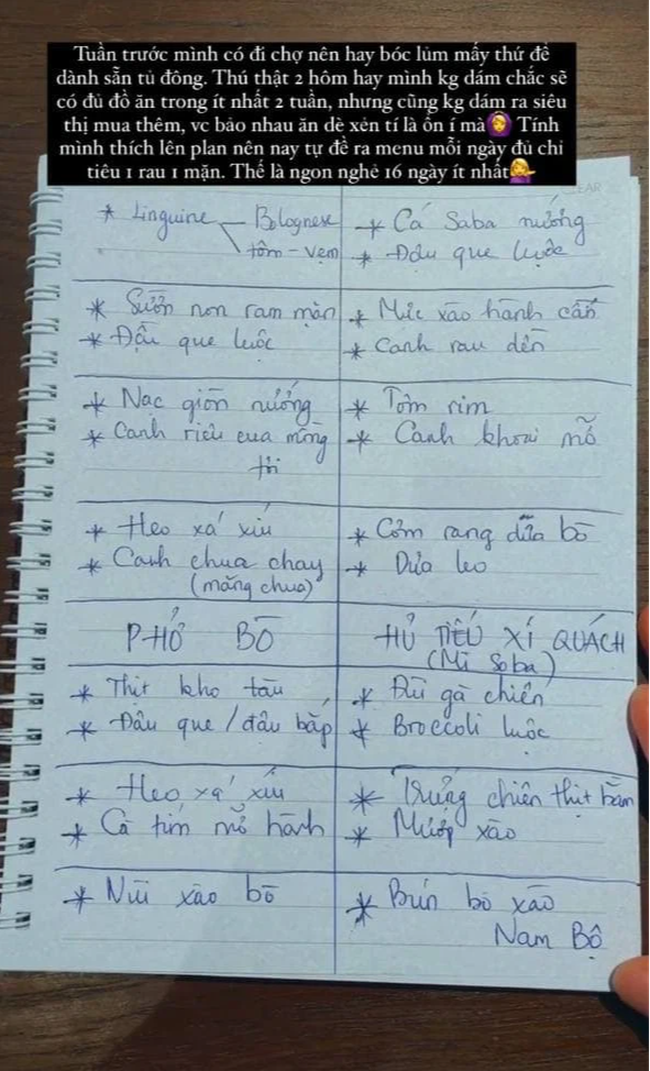 Tuần trước mình có đi chợ nên hay bóc lủm mấy thứ để
dành sẵn tủ đông. Thú thật 2 hôm nay mình kg dám chắc sẽ
có đủ đồ ăn trong ít nhất 2 tuần, nhưng cũng kg dám ra siêu
thị mua thêm, vc bảo nhau ăn dè xẻn tí là ổn í mà🙆‍♀️ Tính
mình thích lên plan nên nay tự đề ra menu mỗi ngày đủ chỉ
tiêu 1 rau 1 mặn. Thế là ngon nghẻ 16 ngày ít nhất💁‍♀️
* Linguine - Bolognese
tôm - vẹm
* Cá Saba nướng
* Đậu que luộc
* Sườn non ram mặn
* Đậu que luộc
* Mực xào hành cần
* Canh rau dền
* Nạc giòn nướng
* Canh riêu cua mồng
tơi
* Tôm rim
* Canh khoai mỡ
* Heo xá xíu
* Canh chua chay
(măng chua)
* Cơm rang dưa bò
* Dưa leo
PHỞ BÒ
HỦ TIẾU XÍ QUÁCH
(Mì Soba)
* Thịt kho tàu
* Đậu que / đậu bắp
* Đùi gà chiên
* Broccoli luộc
* Heo xá xíu
* Cà tím mỡ hành
* Trứng chiên thịt bằm
* Mướp xào
* Nui xào bò
* Bún bò xào
Nam Bộ